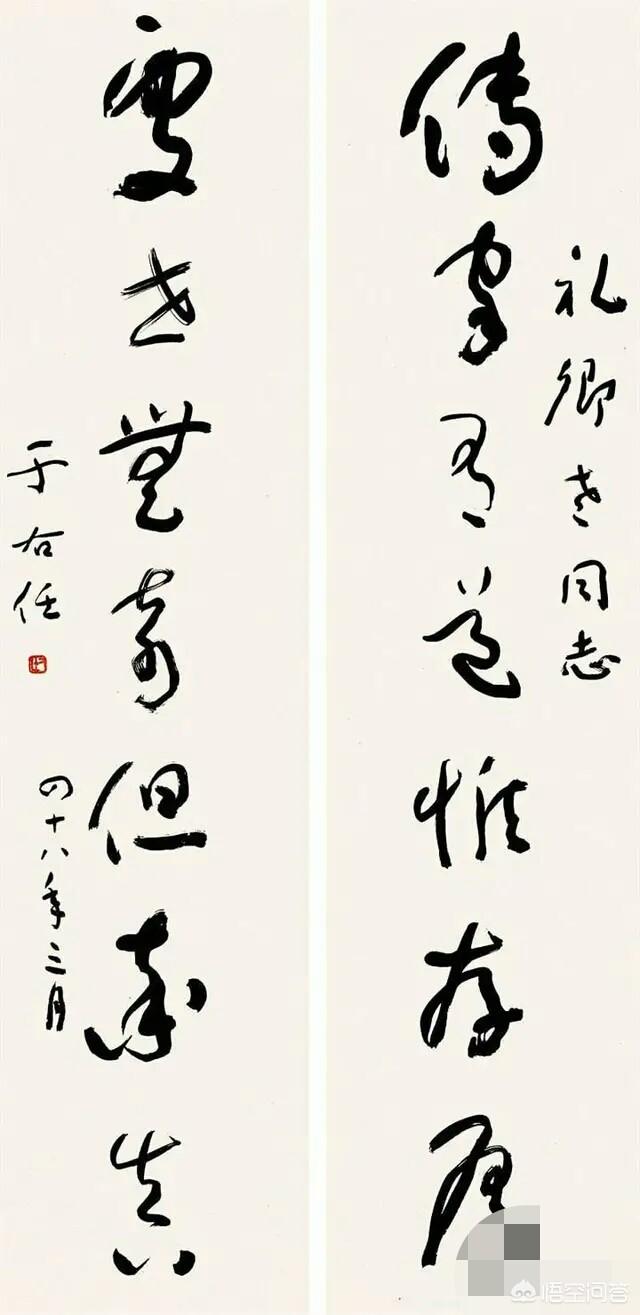 礼卿老同志
傳家有道惟存厚
處世無奇但率真
于右任
四十八年三月
悟空问答